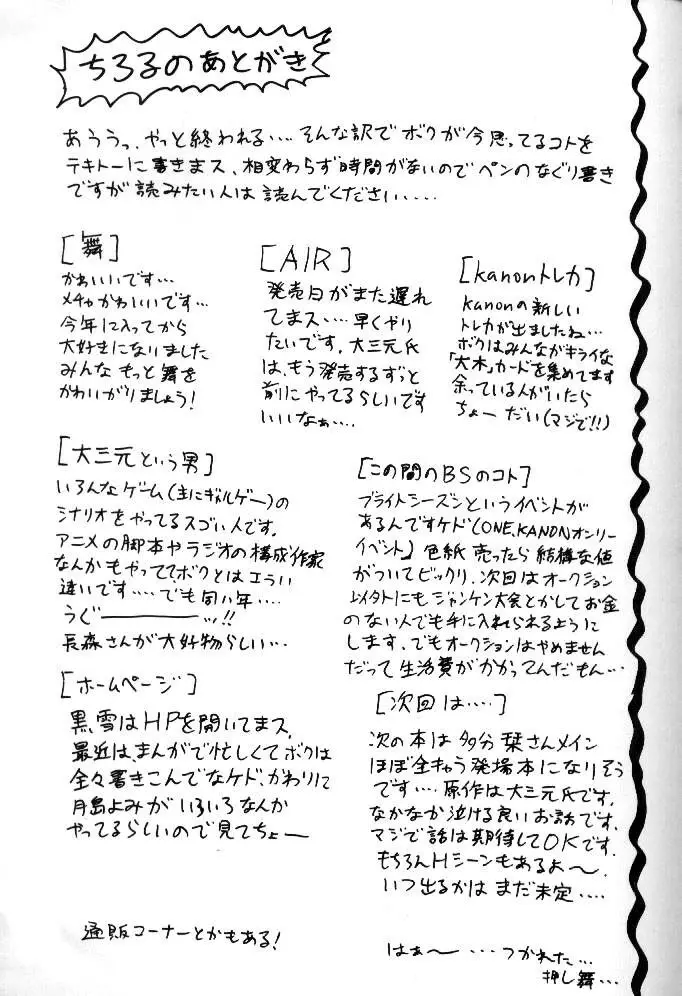 ちろるのあとがき
あううっ、やっと終われる‥‥そんな訳でボクが今思ってるコトを
テキトーに書きまス、相変わらず時間がないのでペンのなぐり書き
ですが読みたい人は読んでください‥‥
[舞]
かわいいです…
メチャかわいいです…
今年に入ってから
大好きになりました
みんなもっと舞を
かわいがりましょう!
[AIR]
発売日がまた遅れ
てまス‥‥早くやり
たいです。大三元氏
は、もう発売するずっと
前にやってるらしいです
いいなぁ‥‥
[kanonトレカ]
kanonの新しい
トレカが出ましたね…
ボクはみんながキライな
「大木」カードを集めてます
余っている人がいたら
ちょーだい(マジで!!)
[大三元という男]
いろんなゲーム(主にギャルゲー)の
シナリオをやってるスゴい人です。
アニメの脚本やラジオの構成作家
なんかもやっててボクとはエラい
違いです‥‥でも同い年‥‥
うぐーーーッ!!
長森さんが大好物らしい…
[この間のBSのコト]
ブライトシーズンというイベントが
あるんですケド(ONE,KANONオンリー
イベント)色紙売ったら結構な値
がついてビックリ、次回はオークション
以外にもジャンケン大会とかしてお金
のない人でも手に入れられるように
します、でもオークションはやめません
だって生活費がかかってんだもん…
[ホームページ]
黒雪はHPを開いてまス、
最近は、まんがで忙しくてボクは
全々書きこんでなケド、かわりに
月島よみがいろいろなんか
やってるらしいので見てちょー
通販コーナーとかもある!
[次回は‥‥]
次の本は多分栞さんメイン
ほぼ全キャラ登場本になりそう
です‥‥原作は大三元氏です、
なかなか泣ける良いお話です、
マジで話は期待してOKです、
もちろんHシーンもあるよ〜、
いつ出るかはまだ未定‥‥
はぁ〜…つかれた…
押し舞…